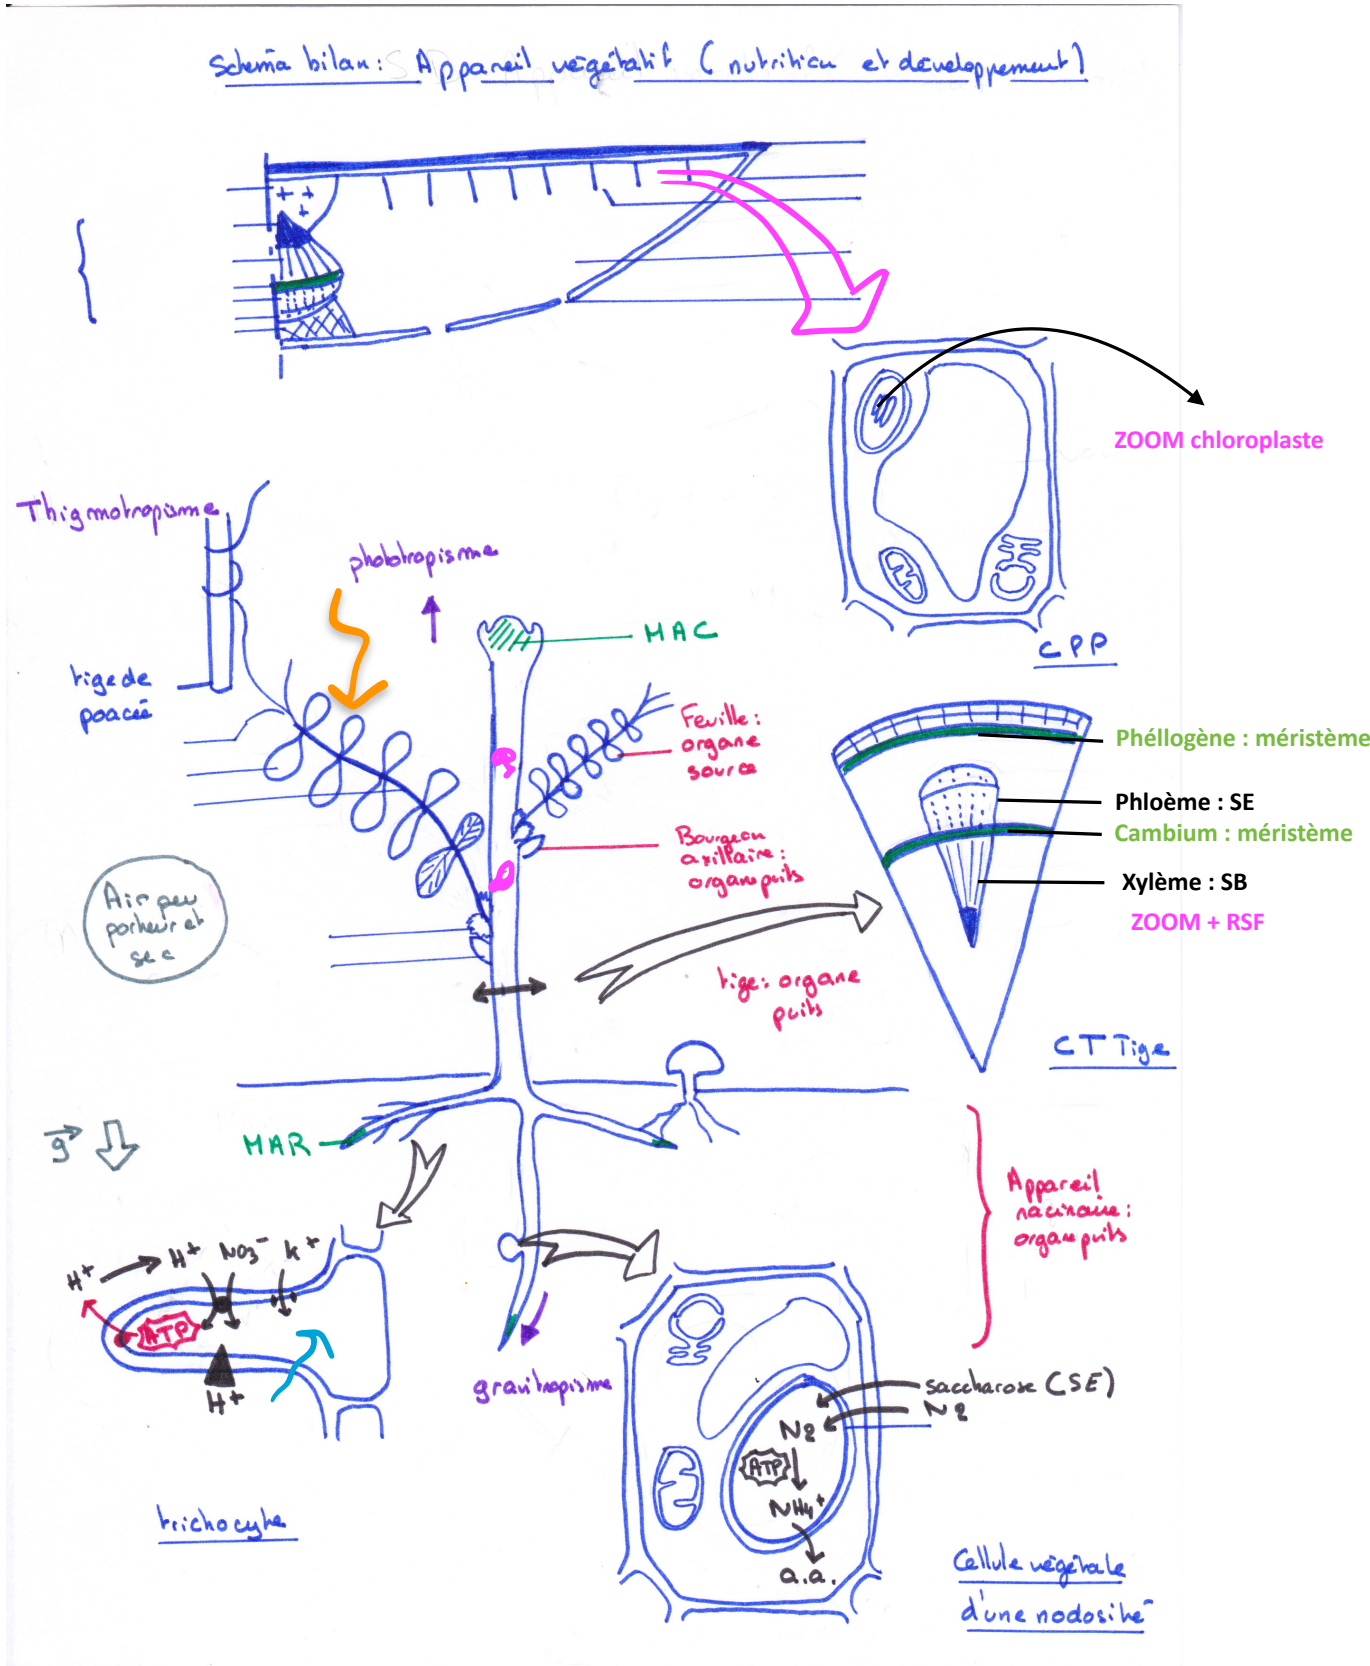 Schéma bilan : Appareil végétatif ( nutrition et développement )
ZOOM chloroplaste
CPP
Thigmotropisme
phototropisme
MAC
tige de
poacée
Feuille :
organe
source
Bourgeon
axillaire :
organe puits
Air peu
porteur et
sec
Phéllogène : méristème
Phloème : SE
Cambium : méristème
Xylème : SB
ZOOM + RSF
tige : organe
puits
CT Tige
g
MAR
Appareil
racinaire :
organe puits
H+ H+ NO3- K+
ATP
H+
gravitropisme
saccharose (SE)
N2
N2
ATP
NH4+
a.a.
trichocyte
Cellule végétale
d'une nodosité